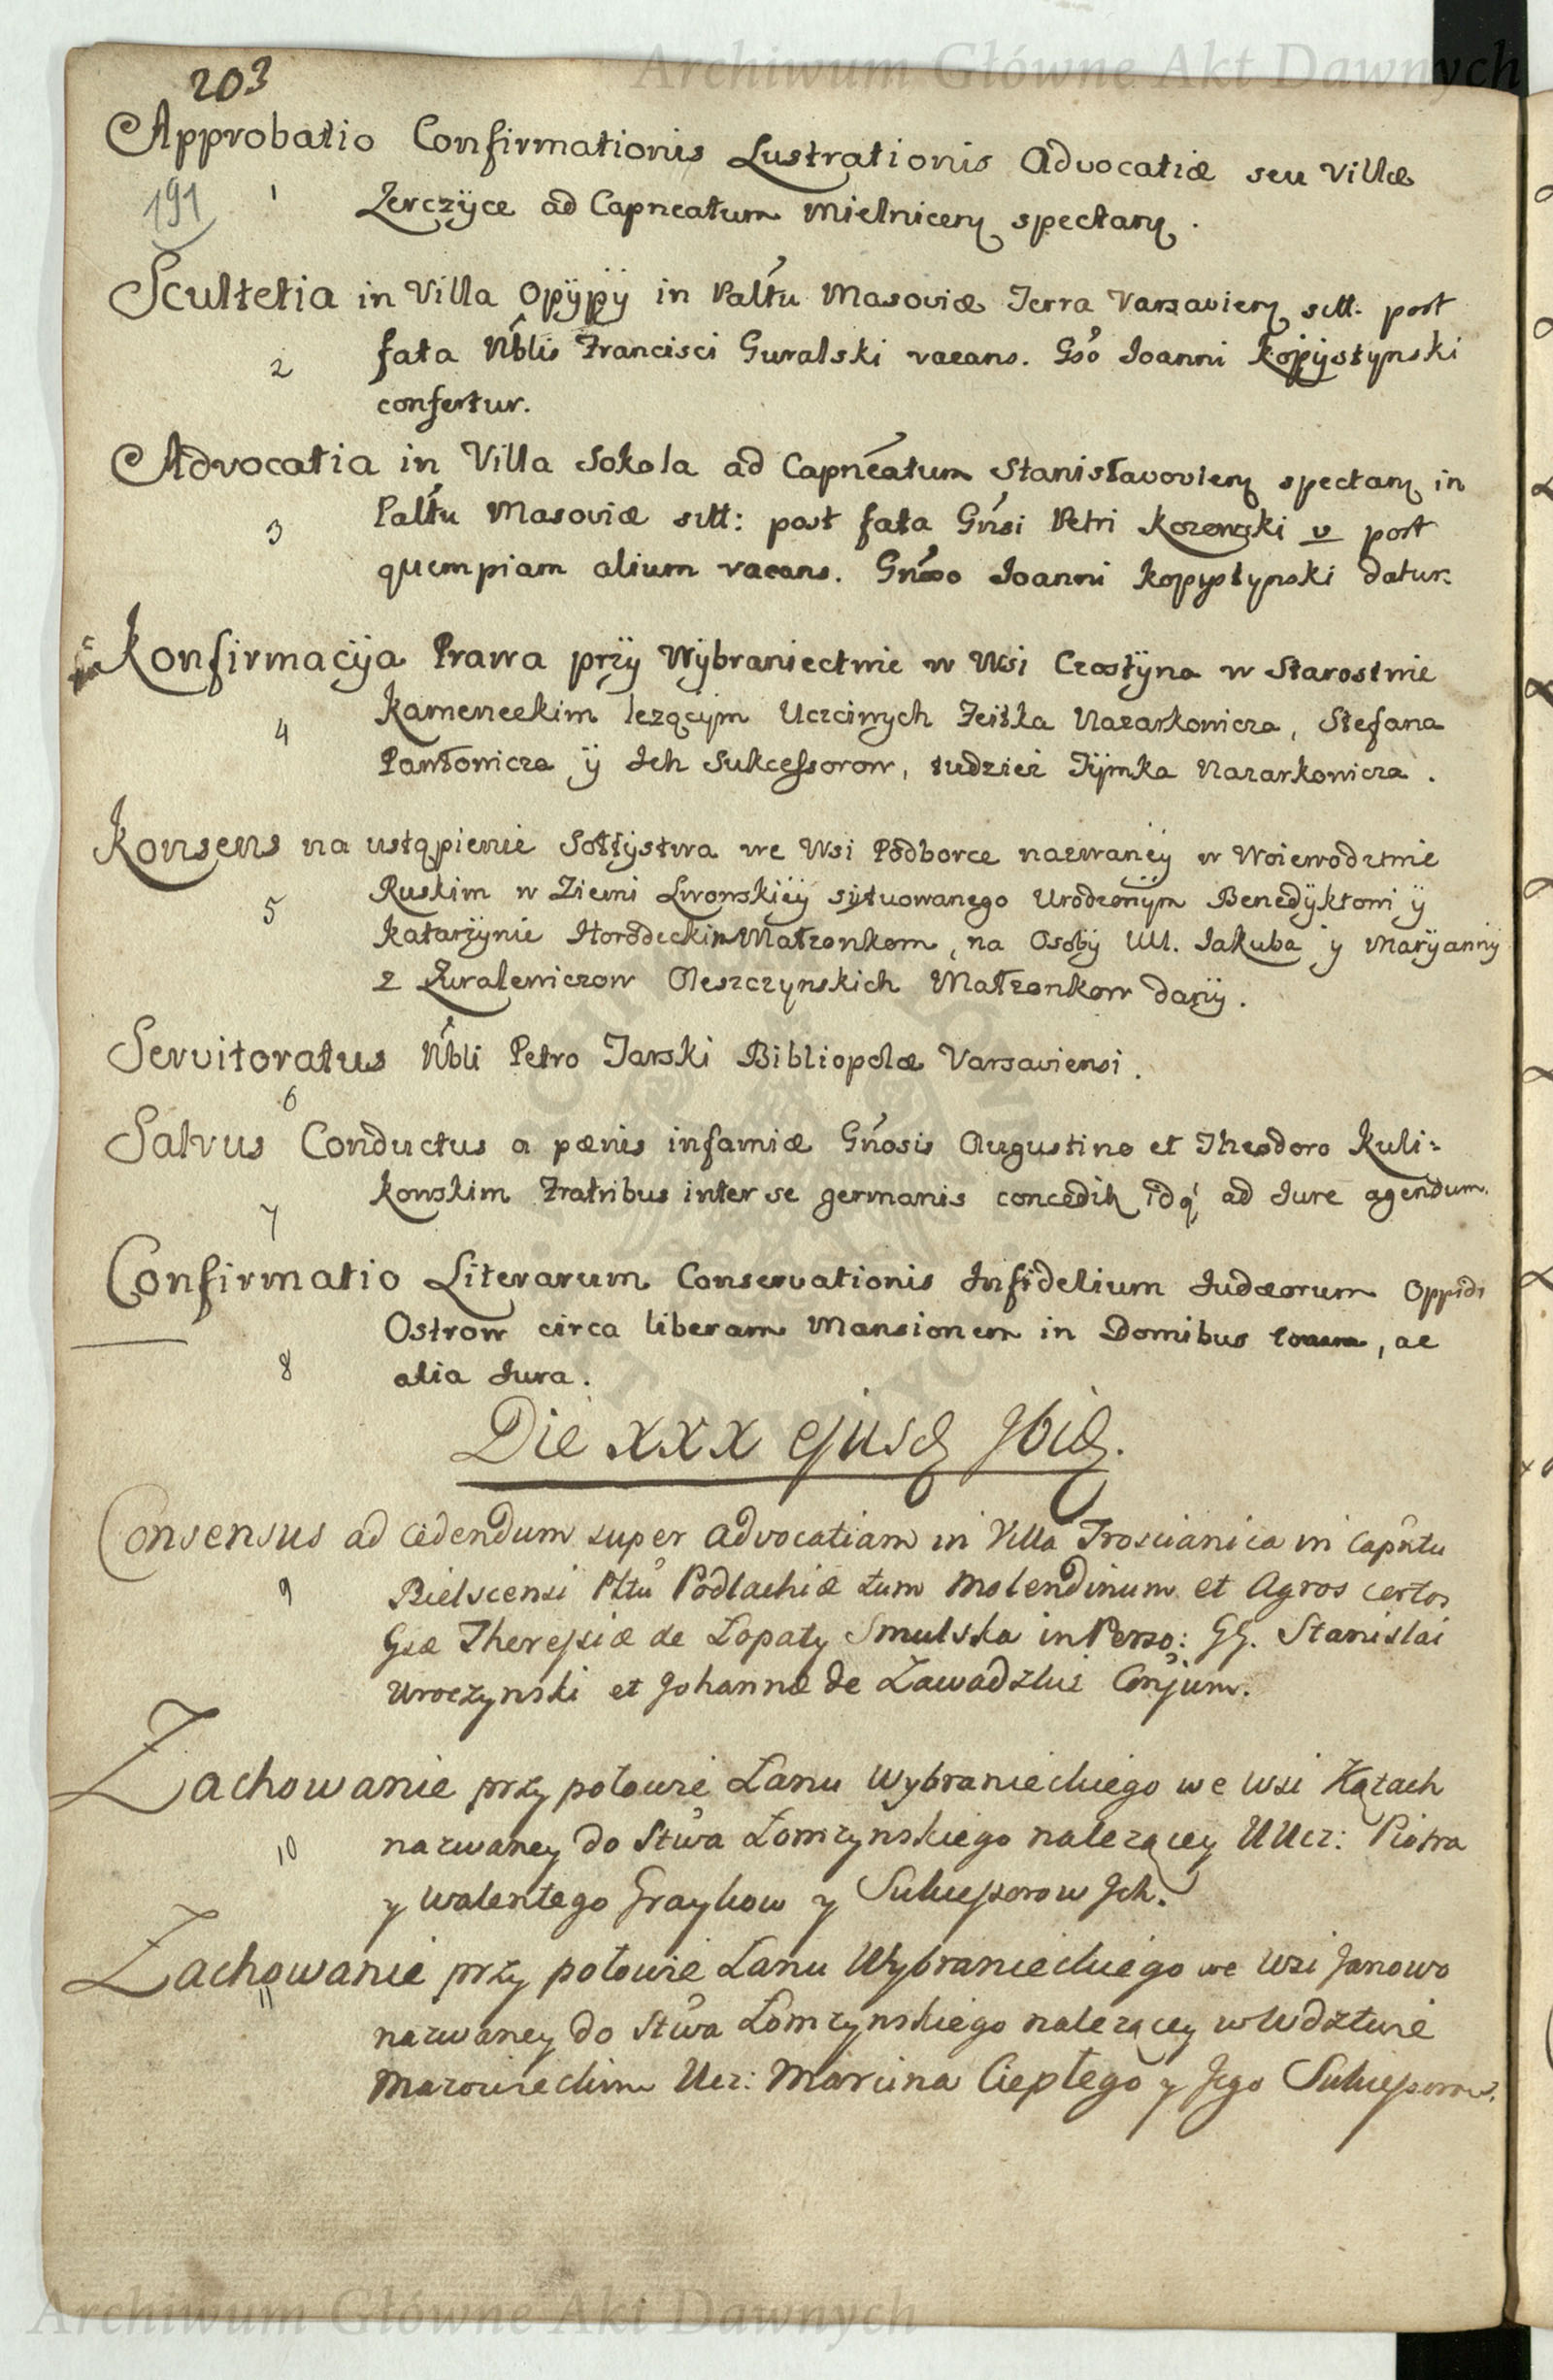 Archiwum Główne Akt Dawnych
203
Approbatio Confirmationis Lustrationis Advocatiæ seu Villæ
191 1 Zerczÿce ad Capneatum Mielnicen spectan.
Scultetia in Villa Opÿpÿ in Paltu Masoviæ Terra Varsavien sitt. post
2 fata Nblis Francisci Guralski vacans. Gso Joanni Kopÿstynski
confertur.
Advocatia in Villa Sokola ad Capneatum Stanisławovien spectan in
3 Paltu Masoviæ sitt: post fata Gnsi Petri Kozewski v post
quempiam alium vacans. Gnoso Joanni Kopystynski datur.
Konfirmacÿa Prawa przÿ Wÿbraniectwie w Wsi Czostÿna w Starostwie
4 Kameneckim lezącÿm Uczciwych Feitka Nazarkowicza, Stefana
Pawłowicza ÿ Ich Sukcessorow, tudziez Tÿmka Nazarkowicza.
Konsens na ustąpienie Sołtystwa we Wsi Podborce nazwaneÿ w Woiewodztwie
5 Ruskim w Ziemi Lwowskieÿ sÿtuowanego Urodzonÿm Benedÿktowi ÿ
Katarzÿnie Horodeckim Małzonkom, na Osobÿ UU. Jakuba ÿ Marÿannÿ
z Zuralewiczow Oleszczynskich Małzonkow danÿ.
Servitoratus Nbli Petro Jarski Bibliopolæ Varsaviensi.
6
Salvus Conductus a pænis infamiæ Gnosis Augustino et Theodoro Kuli-
7 kowskim Fratribus inter se germanis conceditr idq, ad Jure agendum.
Confirmatio Literarum Conservationis Infidelium Judæorum Oppidi
Ostrow circa liberam Mansionem in Domibus, ac
8 alia Jura.
Die XXX ejusd Ibid.
Consensus ad cedendum super advocatiam in Villa Troscianica in Capntu
9 Bielscensi Pltu Podlachiæ tum molendinum et Agros certos
Gsæ Theressiæ de Lopaty Smulska in Perso: GG. Stanislai
Uroczynski et Johannæ de Zawadzkie Conjum.
Zachowanie przy połowie Łanu Wybranieckiego we wsi Kątach
10 nazwaney do Stwa Łomzynskiego nalezącey UUcz: Piotra
y Walentego Graykow y Sukcessorow Ich.
Zachowanie przy połowie Łanu Wybranieckiego we wsi Janowo
11 nazwaney do Stwa Łomzynskiego nalezącey w Wdztwie
Mazowieckim Ucz: Marcina Ciepłego y Jego Sukcessorow.
Archiwum Główne Akt Dawnych